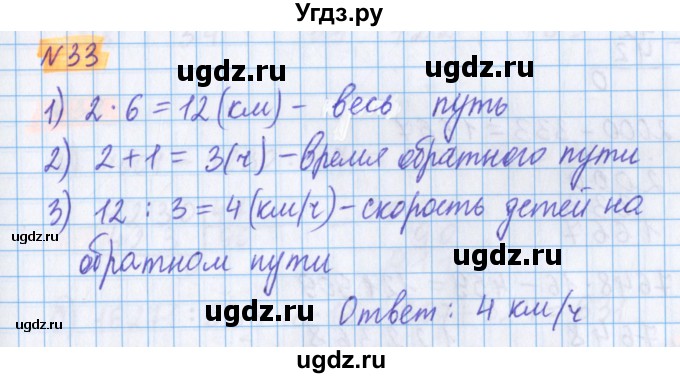 Угдз.ру
№33
ugdz.ru ugdz.ru
1) 2 · 6 = 12 (км) – весь путь
ugdz.ru
2) 2 + 1 = 3 (ч) – время обратного пути
ugdz.ru
3) 12 : 3 = 4 (км/ч) – скорость детей на
ugdz.ru ugdz.ru
обратном пути
ugdz.ru
Ответ: 4 км/ч
ugdz.ru ugdz.ru
ugdz.ru